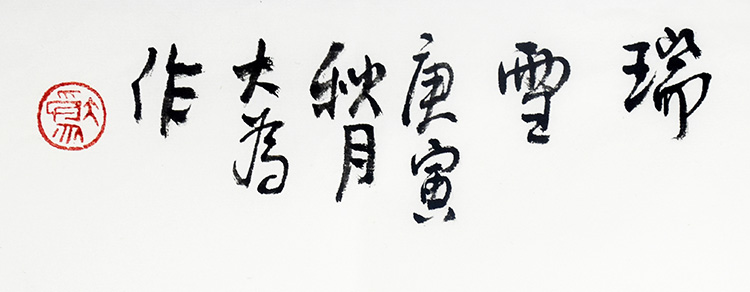 瑞
雪
庚寅
秋月
大为
作